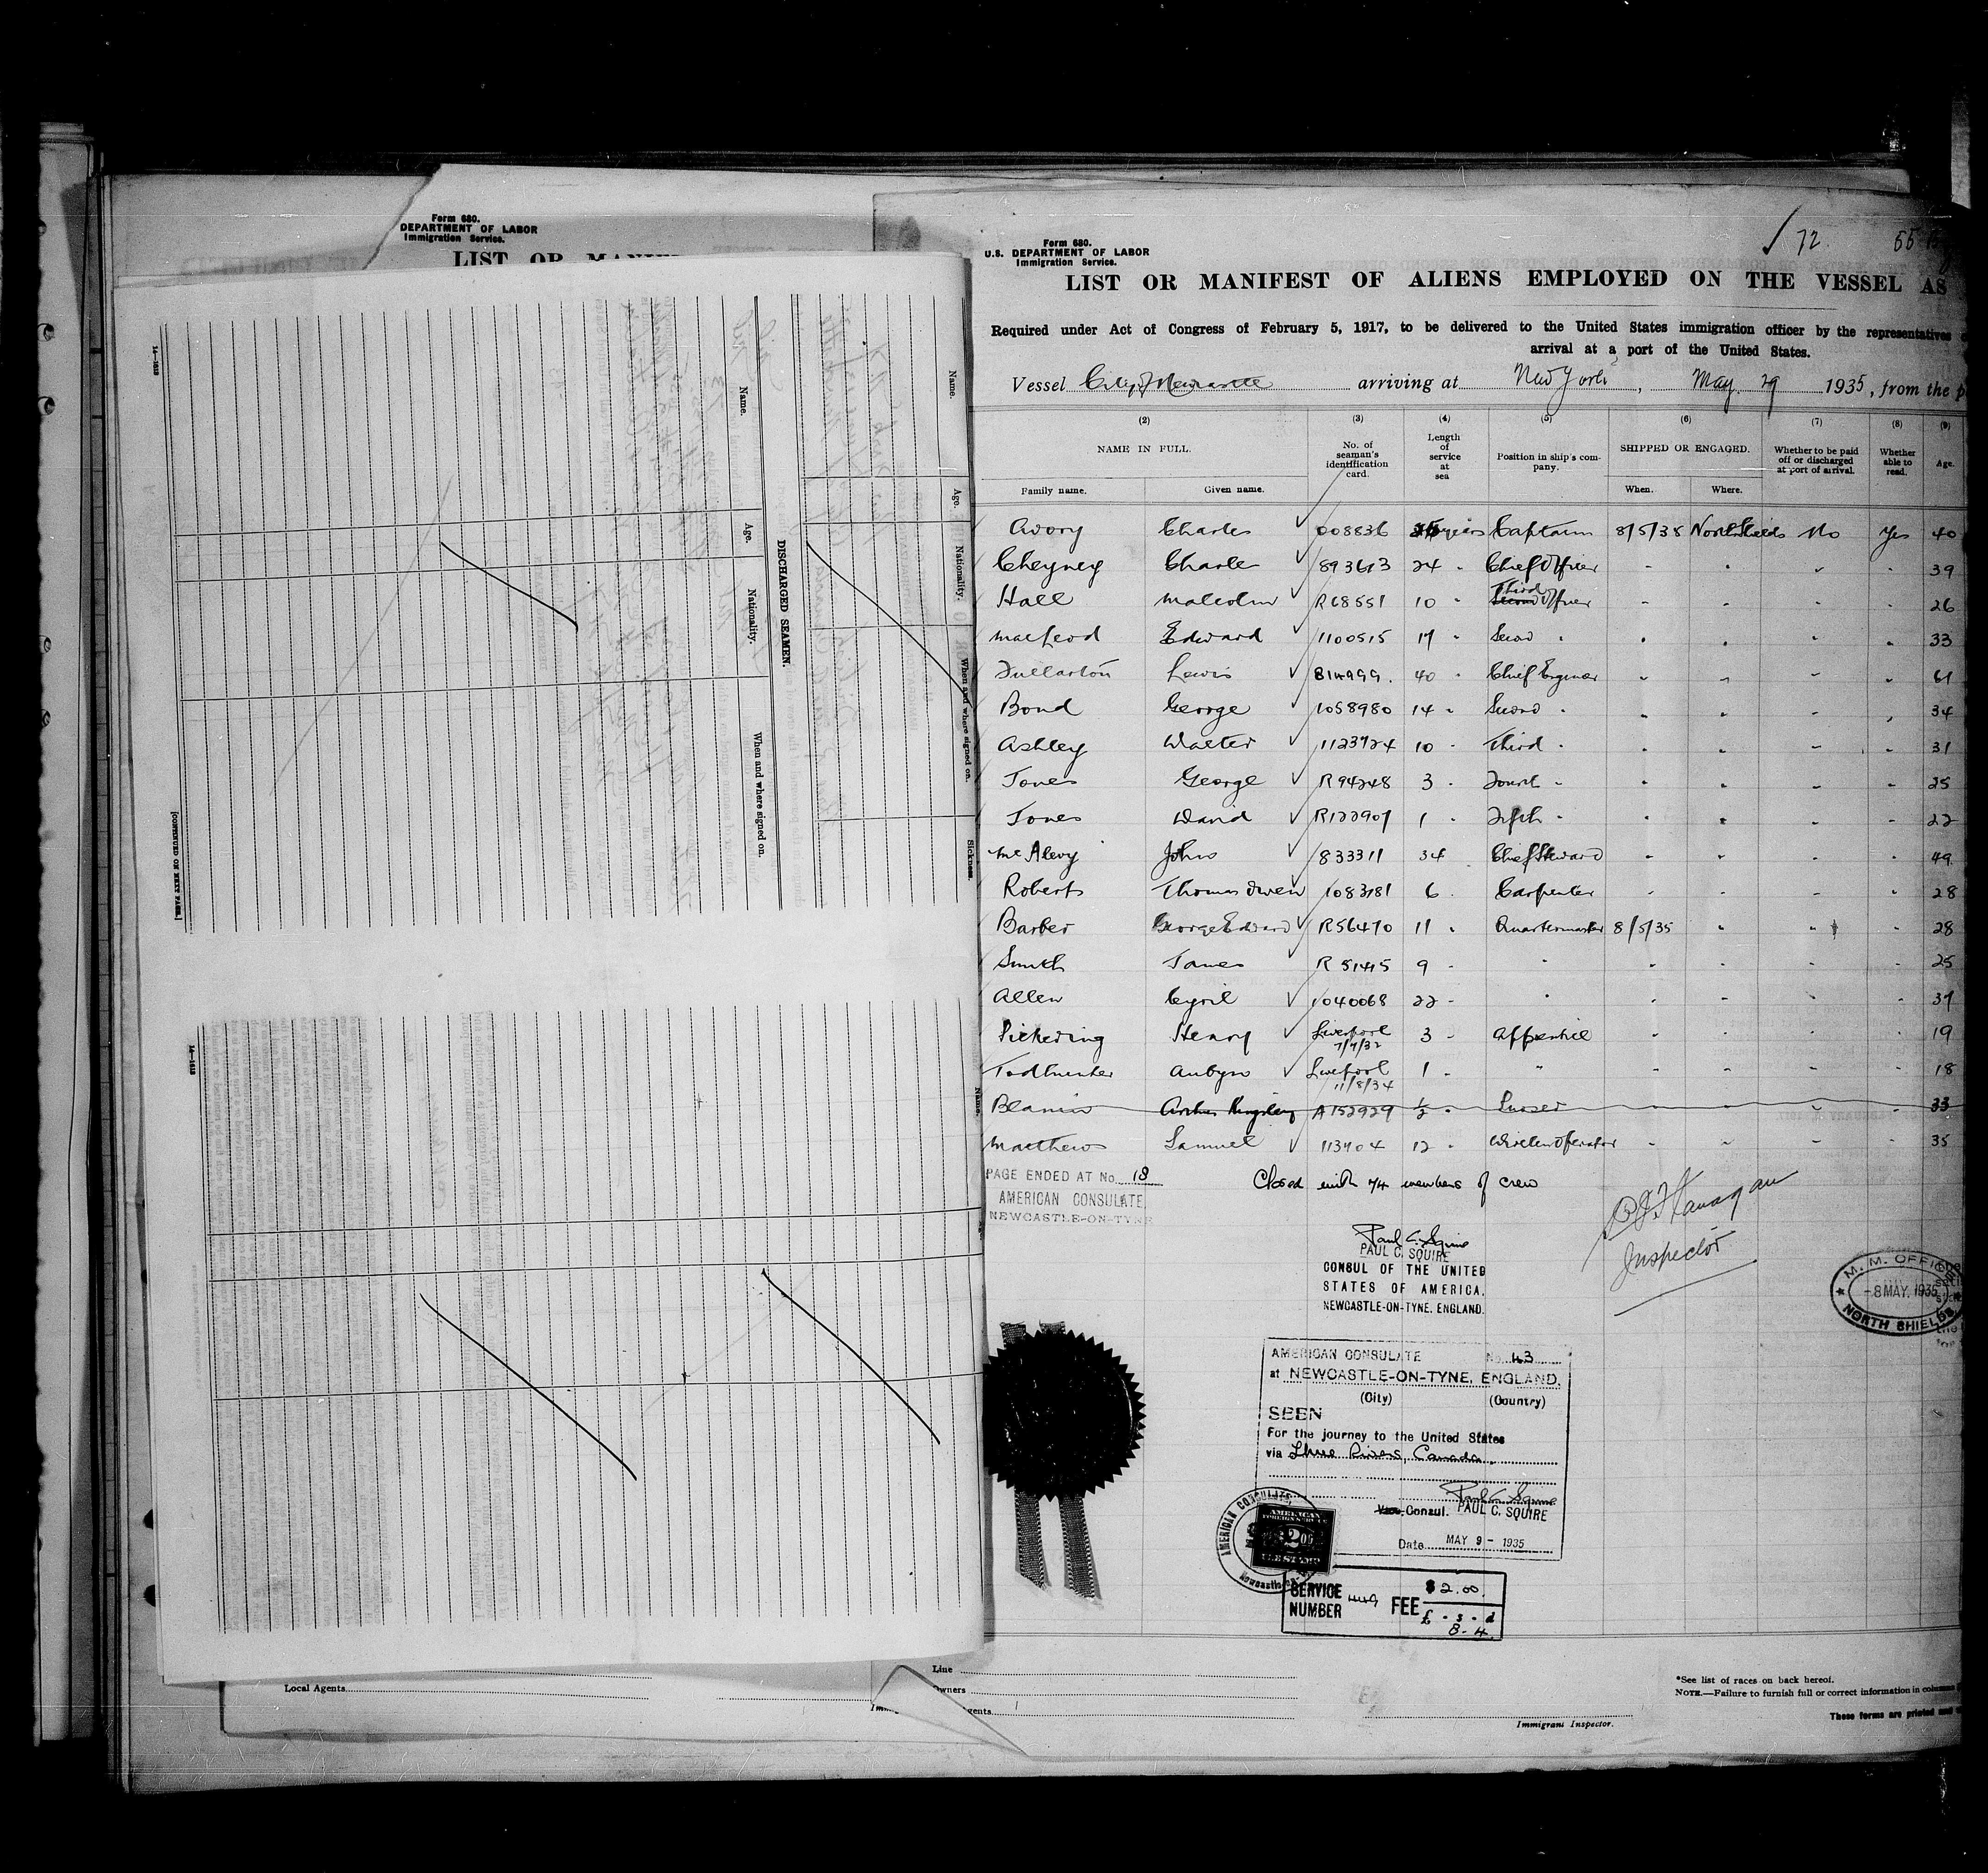 Form 680.
DEPARTMENT OF LABOR
Immigration Service.
LIST OR
Name. Age. Nationality. When and where signed on. Sickness.
DISCHARGED SEAMEN.
Name. Age. Nationality. When and where signed on.
[CONTINUED ON NEXT PAGE.]
14—1613
14—1613
Name.
Local Agents
72
Form 680.
U.S. DEPARTMENT OF LABOR
Immigration Service.
LIST OR MANIFEST OF ALIENS EMPLOYED ON THE VESSEL AS
Required under Act of Congress of February 5, 1917, to be delivered to the United States immigration officer by the representatives
arrival at a port of the United States.
Vessel City of Newcastle arriving at New York, May 29 1935, from the
(2) (3) (4) (5) (6) (7) (8) (9)
NAME IN FULL. No. of seaman's identification card. Length of service at sea Position in ship's company. SHIPPED OR ENGAGED. Whether to be paid off or discharged at port of arrival. Whether able to read. Age.
Family name. Given name. When. Where.
Avory Charles 008836 years Captain 8/5/35 North Shields No Yes 40
Cheyney Charles 893613 24 " Chief Officer " " " " 39
Hall Malcolm R68551 10 " Third Officer " " " " 26
MacLeod Edward 1100515 17 " Second " " " " " 33
Fullarton Lewis 814999. 40 " Chief Engineer " " " " 61
Bond George 1058980 14 " Second " " " " " 34
Ashley Walter 1123724 10 " Third " " " " " 31
Jones George R94248 3 " Fourth " " " " " 25
Jones David R122907 1 " Fifth " " " " " 22
McAlevy John 833311 34 Chief Steward " " " " 49
Roberts Thomas Owen 1083181 6 " Carpenter " " " " 28
Barber George Edward R56470 11 " Quartermaster 8/5/35 " " " 28
Smith James R 51415 9 " " " " " " 25
Allen Cyril 1040068 22 " " " " " " 37
Pickering Henry Liverpool 7/7/32 3 " Apprentice " " " " 19
Todhunter Aubyn Liverpool 11/8/34 1 " " " " " " 18
Arthur Kingsley A152929 1/2 " " " " " 33
Matthews Samuel 113704 12 " Wireless Operator " " " " 35
PAGE ENDED AT No. 18
AMERICAN CONSULATE,
NEWCASTLE-ON-TYNE
Closed with 74 members of crew
Paul C. Squire
PAUL C. SQUIRE
CONSUL OF THE UNITED
STATES OF AMERICA.
NEWCASTLE-ON-TYNE, ENGLAND.
Flanagan
Inspector
M. M. OFFICE
-8 MAY. 1935
NORTH SHIELDS
AMERICAN CONSULATE No. 43
at NEWCASTLE-ON-TYNE, ENGLAND.
(City) (Country)
SEEN
For the journey to the United States
via Three Rivers, Canada.
Paul C. Squire
Vice Consul. PAUL C. SQUIRE
Date MAY 9 - 1935
AMERICAN CONSULATE,
AMERICAN
FOREIGN SERVICE
SERVICE NUMBER 449 FEE $2.00
£ - s - d
8 - 4
Line
Owners
*See list of races on back hereof.
NOTE.—Failure to furnish full or correct information in columns
Immigrant Inspector.
These forms are printed and